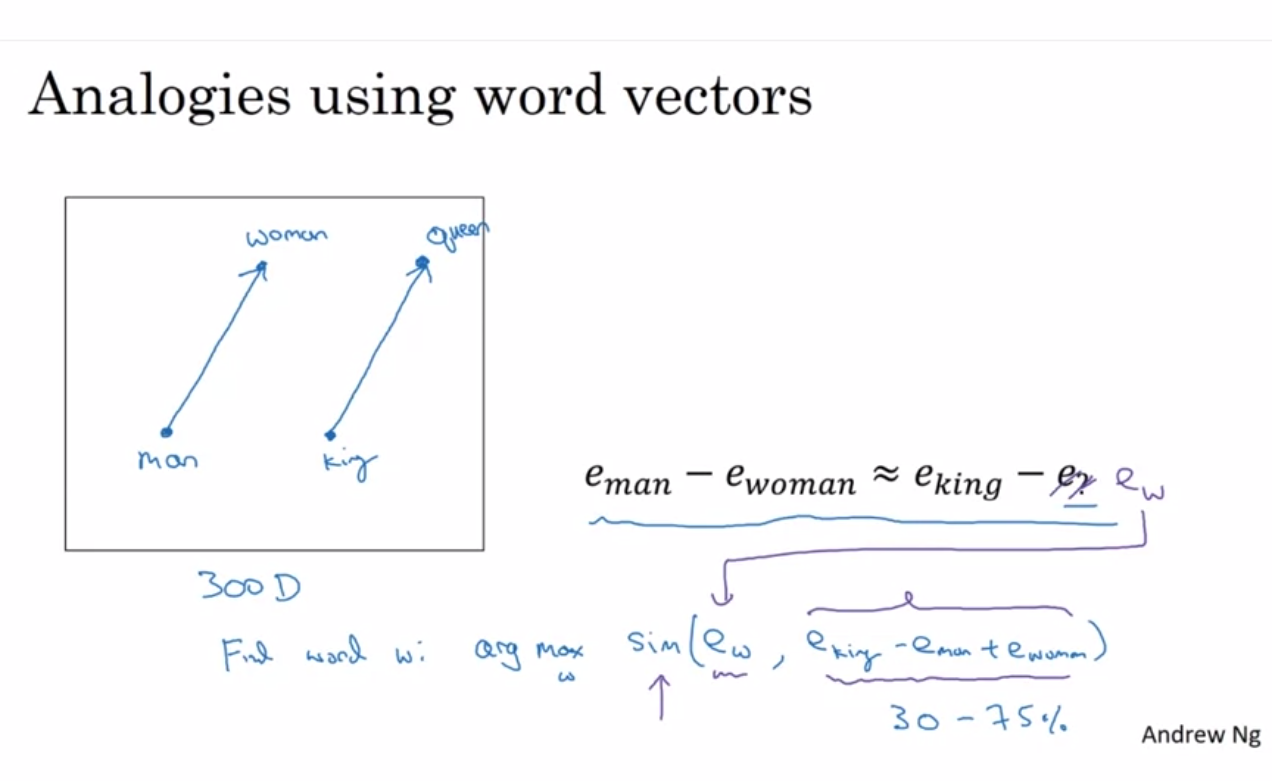 Analogies using word vectors
woman
queen
man
king
e_man − e_woman ≈ e_king − e_? e_w
300 D
Find word w: arg max_w sim(e_w, e_king − e_man + e_woman)
30 - 75%
Andrew Ng